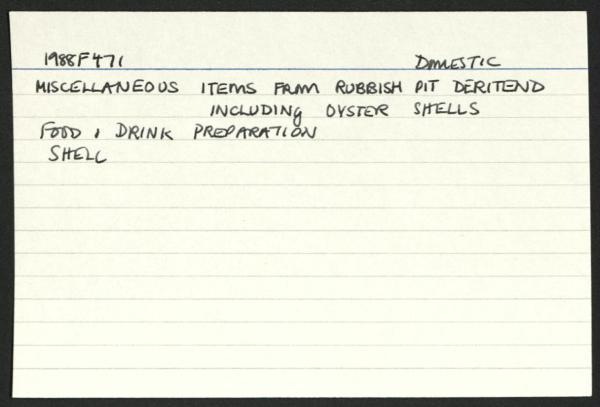 1988F471 DOMESTIC
MISCELLANEOUS ITEMS FROM RUBBISH PIT DERITEND
INCLUDING OYSTER SHELLS
FOOD & DRINK PREPARATION
SHELL